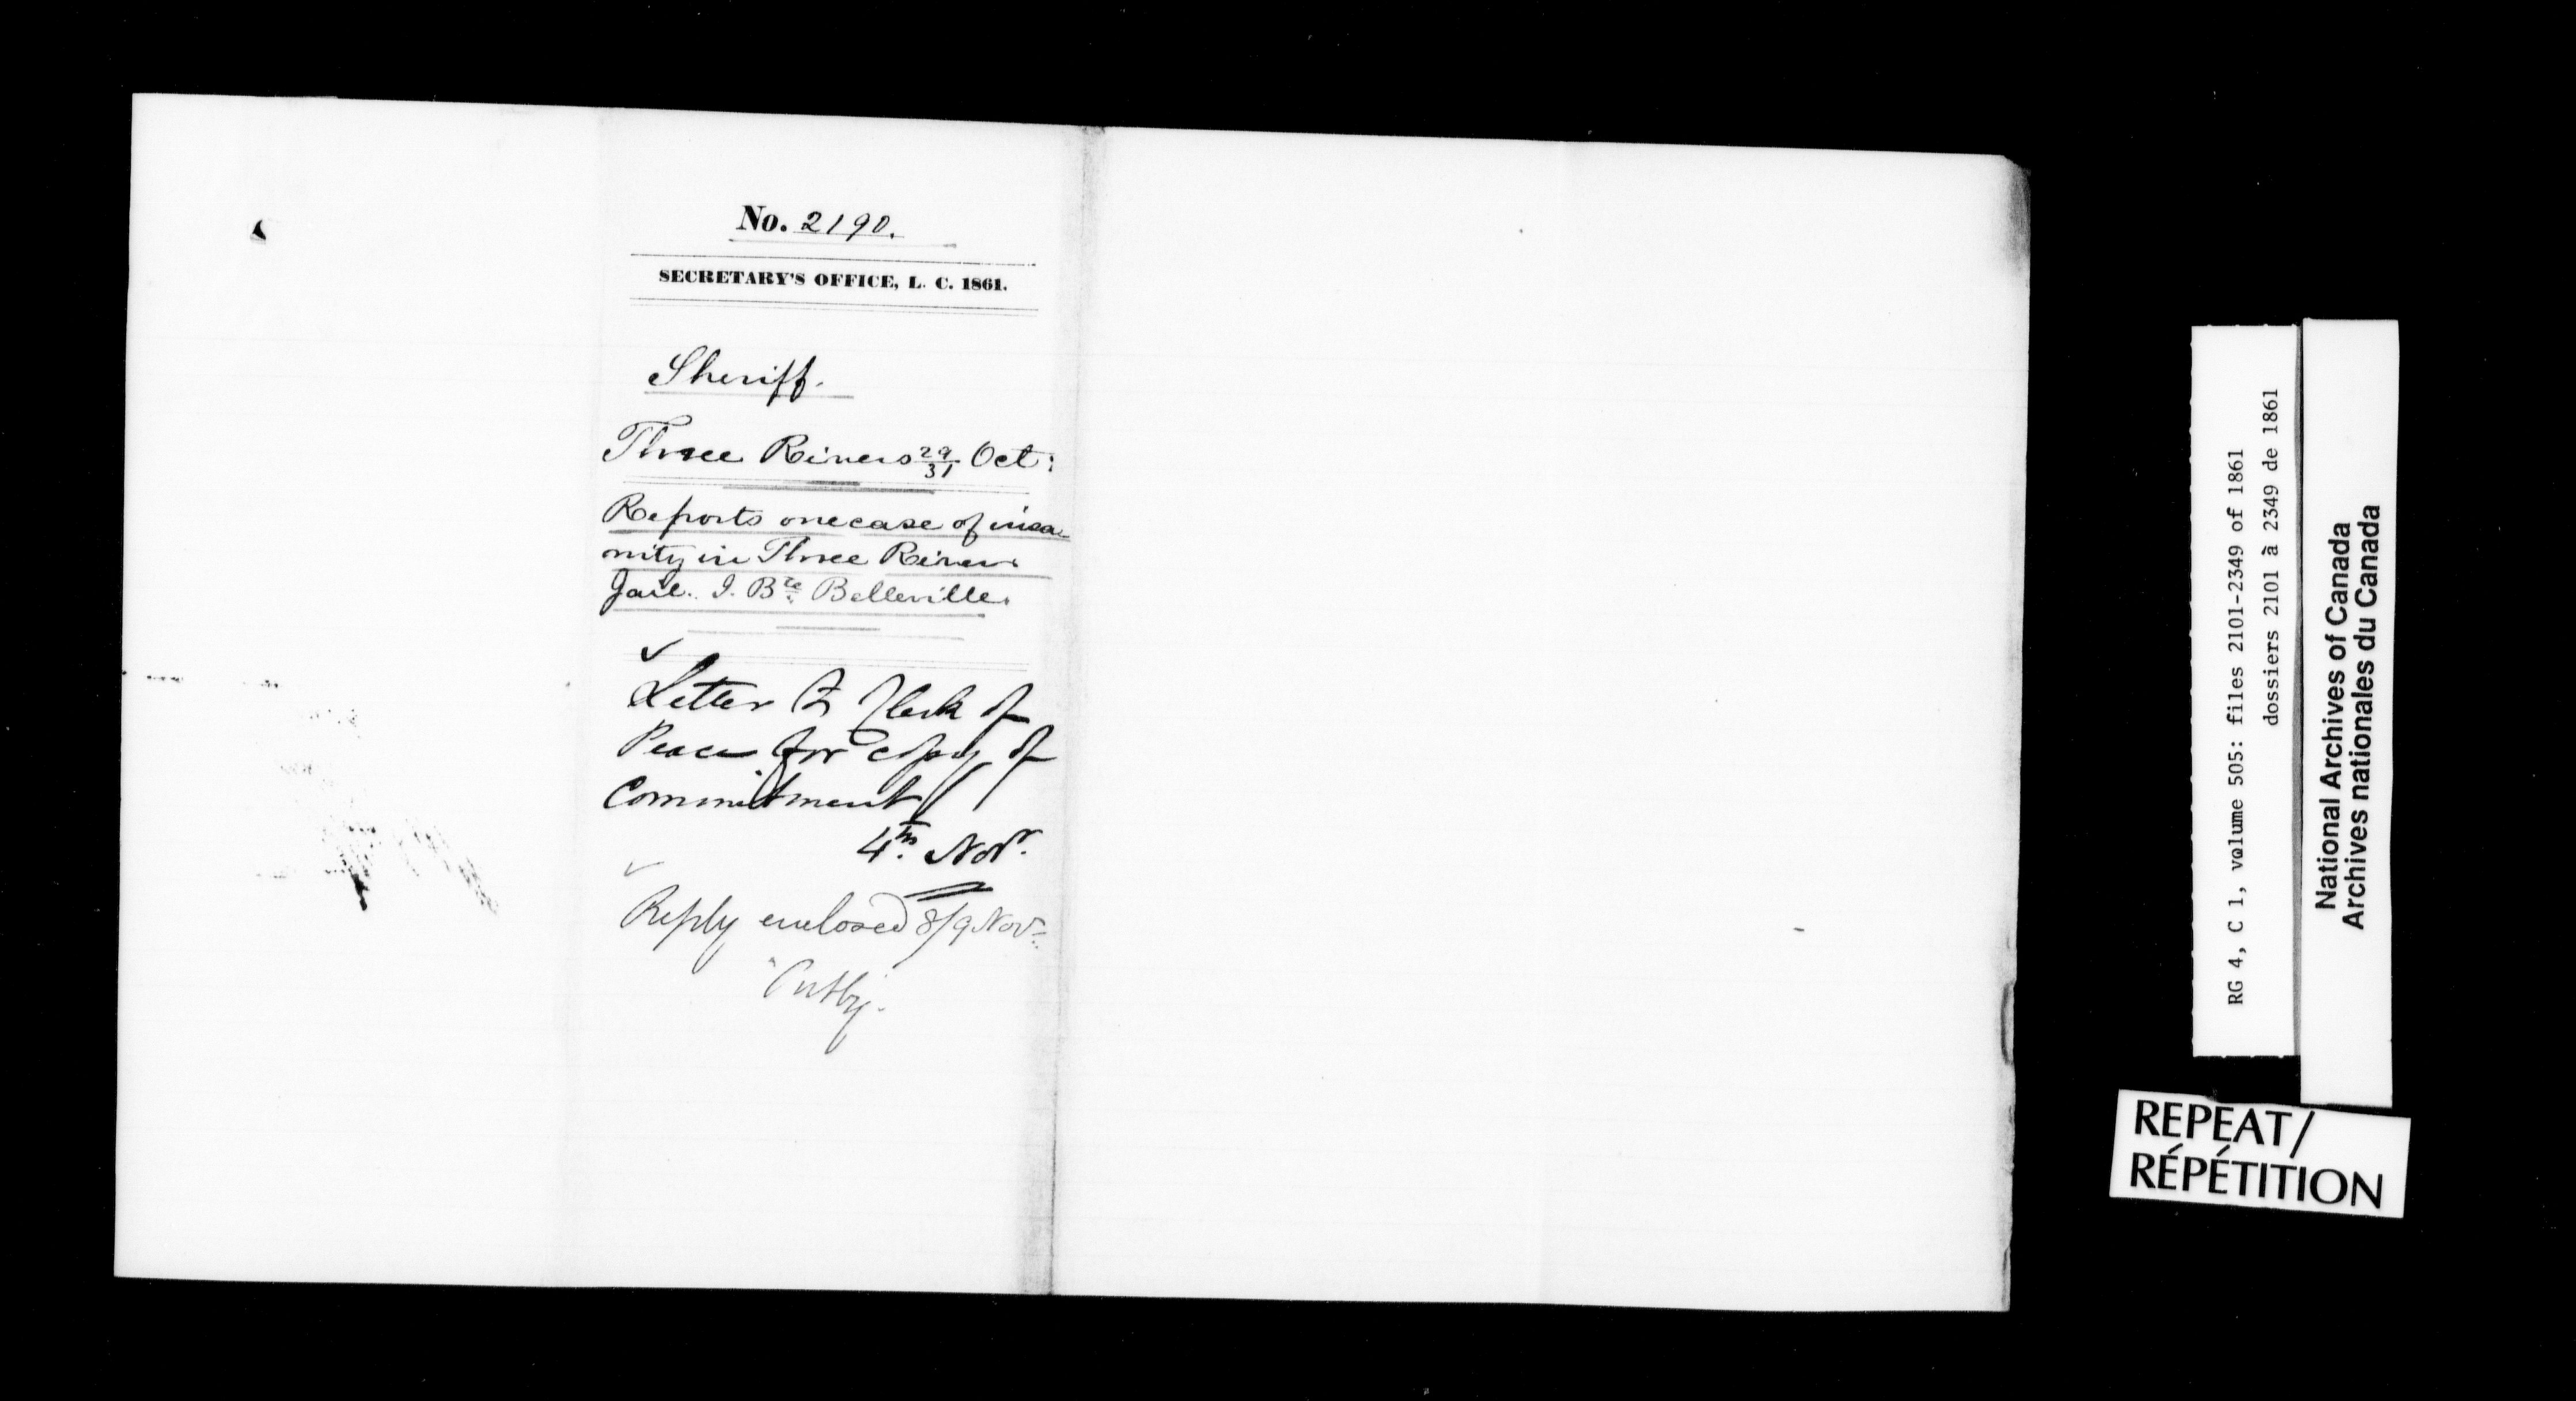 No. 2190.
SECRETARY'S OFFICE, L. C. 1861.
Sheriff.
Three Rivers 29/31 Oct:
Reports one case of insa
nity in Three Rivers
Jail. J. Bte Belleville.
Letter to Clerk of
Peace for copy of
Commitment
4th. Novr.
Reply enclosed 8/9 Novr.
RG 4, C 1, volume 505: files 2101-2349 of 1861
dossiers 2101 à 2349 de 1861
National Archives of Canada
Archives nationales du Canada
REPEAT/
RÉPÉTITION